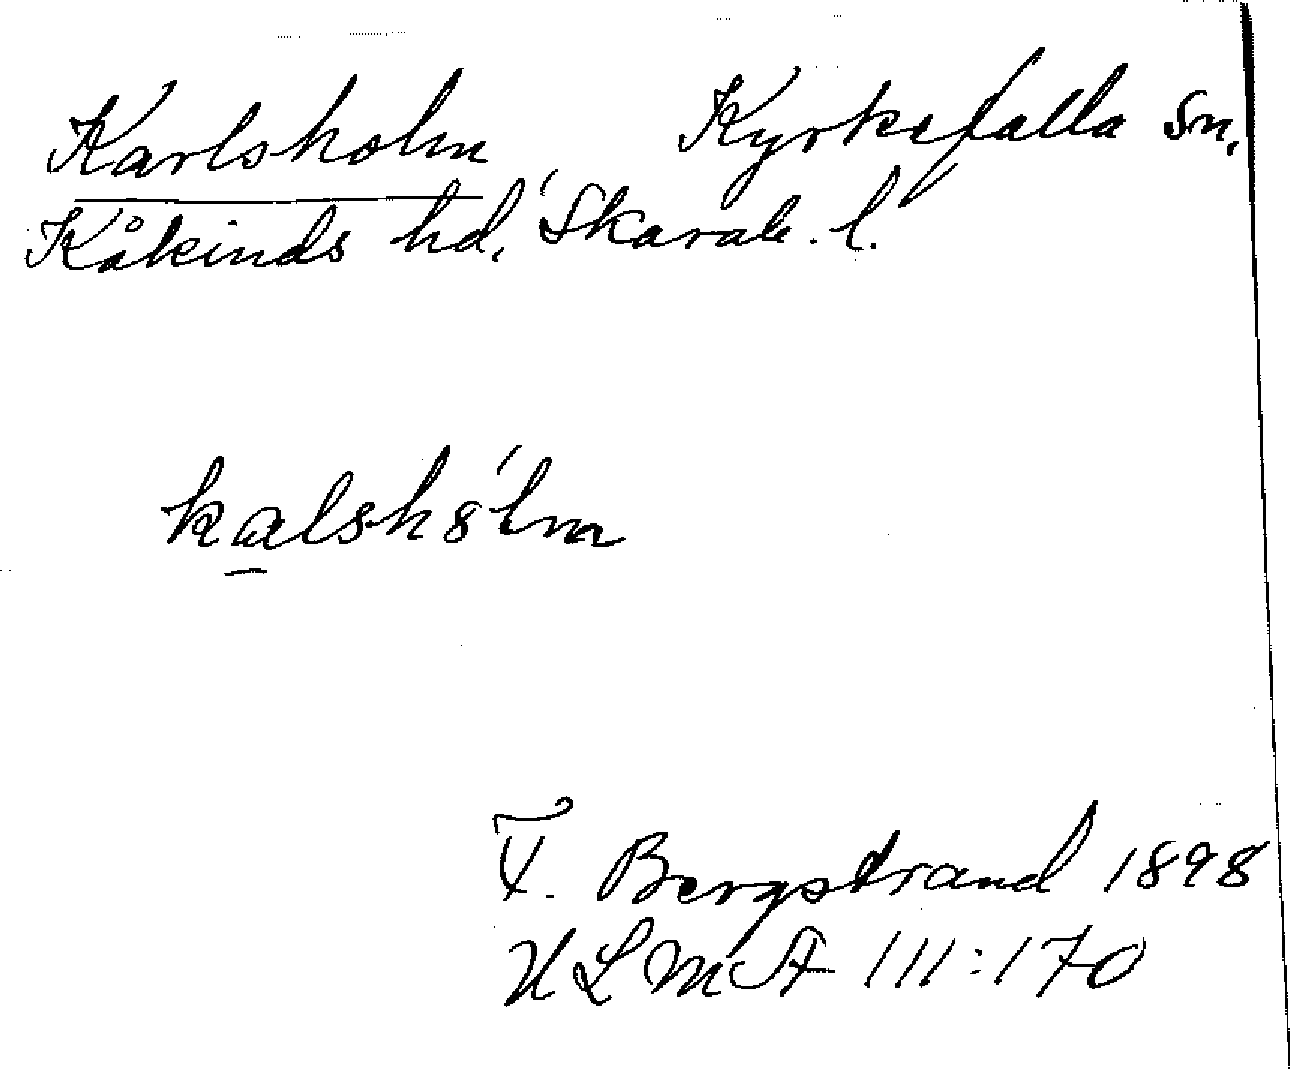 Karlsholm Kyrkefalla Sn,
Kåkinds hd, Skarab. l.
kalsh8´lm
F. Bergstrand 1898
ULMA 111:170